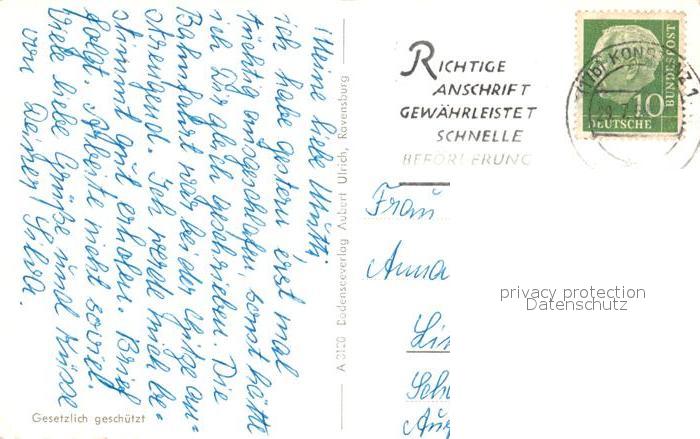 Meine liebe Mutti,
ich habe gestern erst mal
tüchtig ausgeschlafen, sonst hätte
ich Dir gleich geschrieben. Die
Bahnfahrt war bei der Hitze an-
strengend. Ich werde mich be-
stimmt gut erholen. Brief
folgt. Arbeite nicht soviel.
Viele liebe Grüße und Küsse
von Deiner
Gesetzlich geschützt
A 3120 Bodenseeverlag Aubert Ulrich, Ravensburg
RICHTIGE
ANSCHRIFT
GEWÄHRLEISTET
SCHNELLE
BEFÖRDERUNG
DEUTSCHE
BUNDESPOST
10
Frau
Anna
privacy protection
Datenschutz